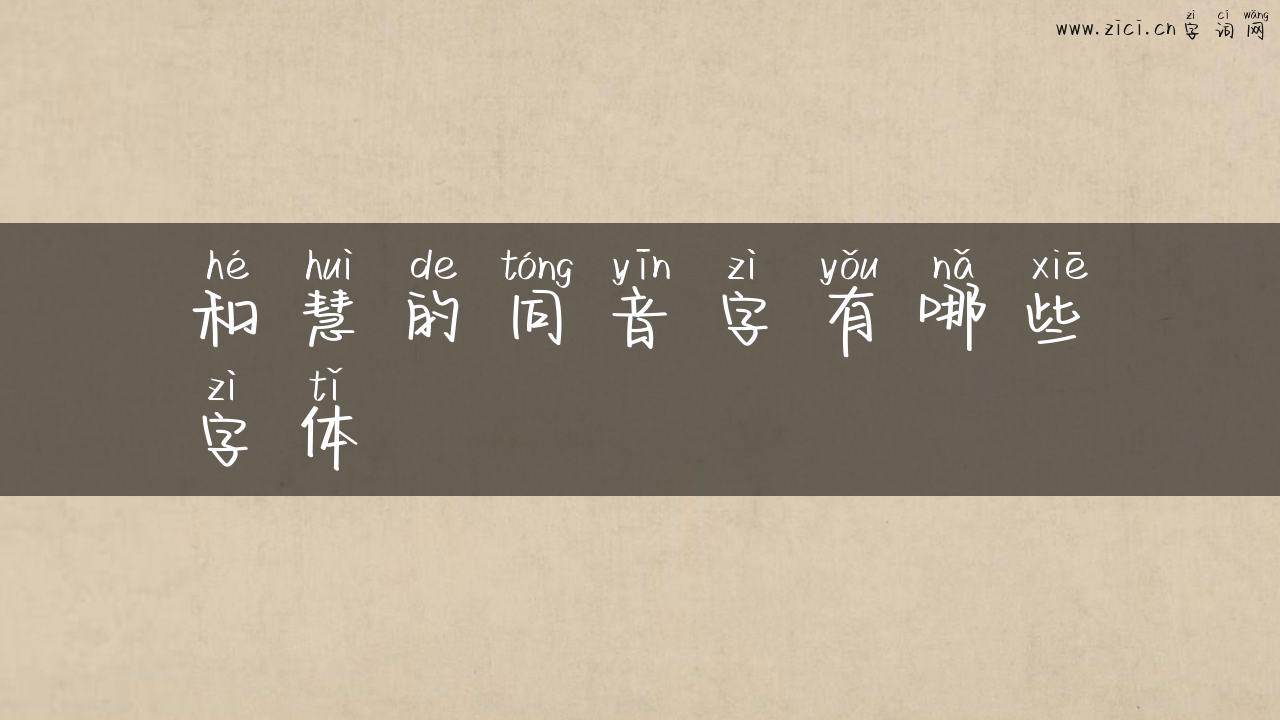 zì cí wǎng
www.zici.cn 字词网
hé huì de tóng yīn zì yǒu nǎ xiē
和慧的同音字有哪些
zì tǐ
字体